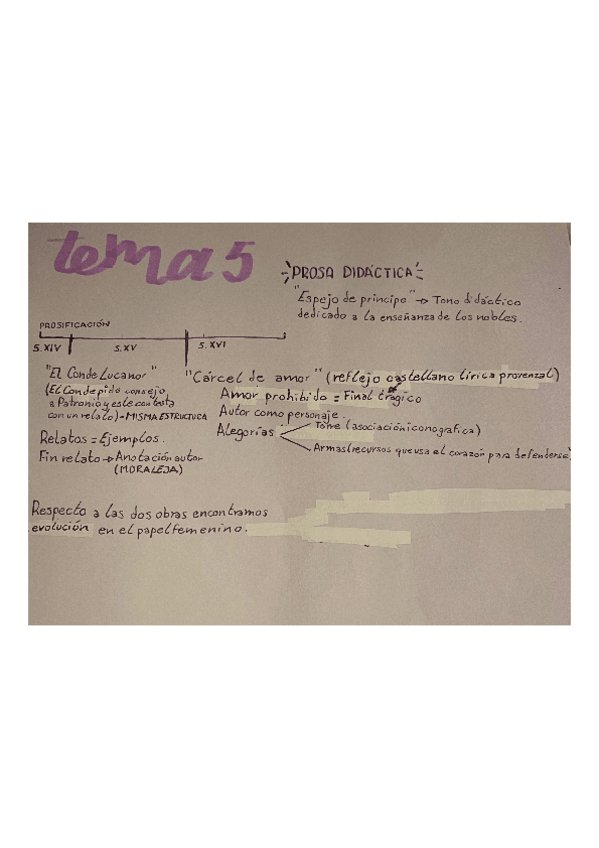 tema 5
PROSA DIDÁCTICA
"Espejo de principe" → Tono didáctico
dedicado a la enseñanza de los nobles.
PROSIFICACIÓN
S.XIV S.XV S.XVI
"El Conde Lucanor"
(El Conde pide consejo
a Patronio y este contesta
con un relato) = MISMA ESTRUCTURA
Relatos = Ejemplos.
Fin relato → Anotación autor
(MORALEJA)
"Cárcel de amor" (reflejo castellano lírica provenzal)
Amor prohibido = Final trágico
Autor como personaje.
Alegorías
Torre (asociación iconografica)
Armas (recursos que usa el corazón para defenderse)
Respecto a las dos obras encontramos
evolución en el papel femenino.